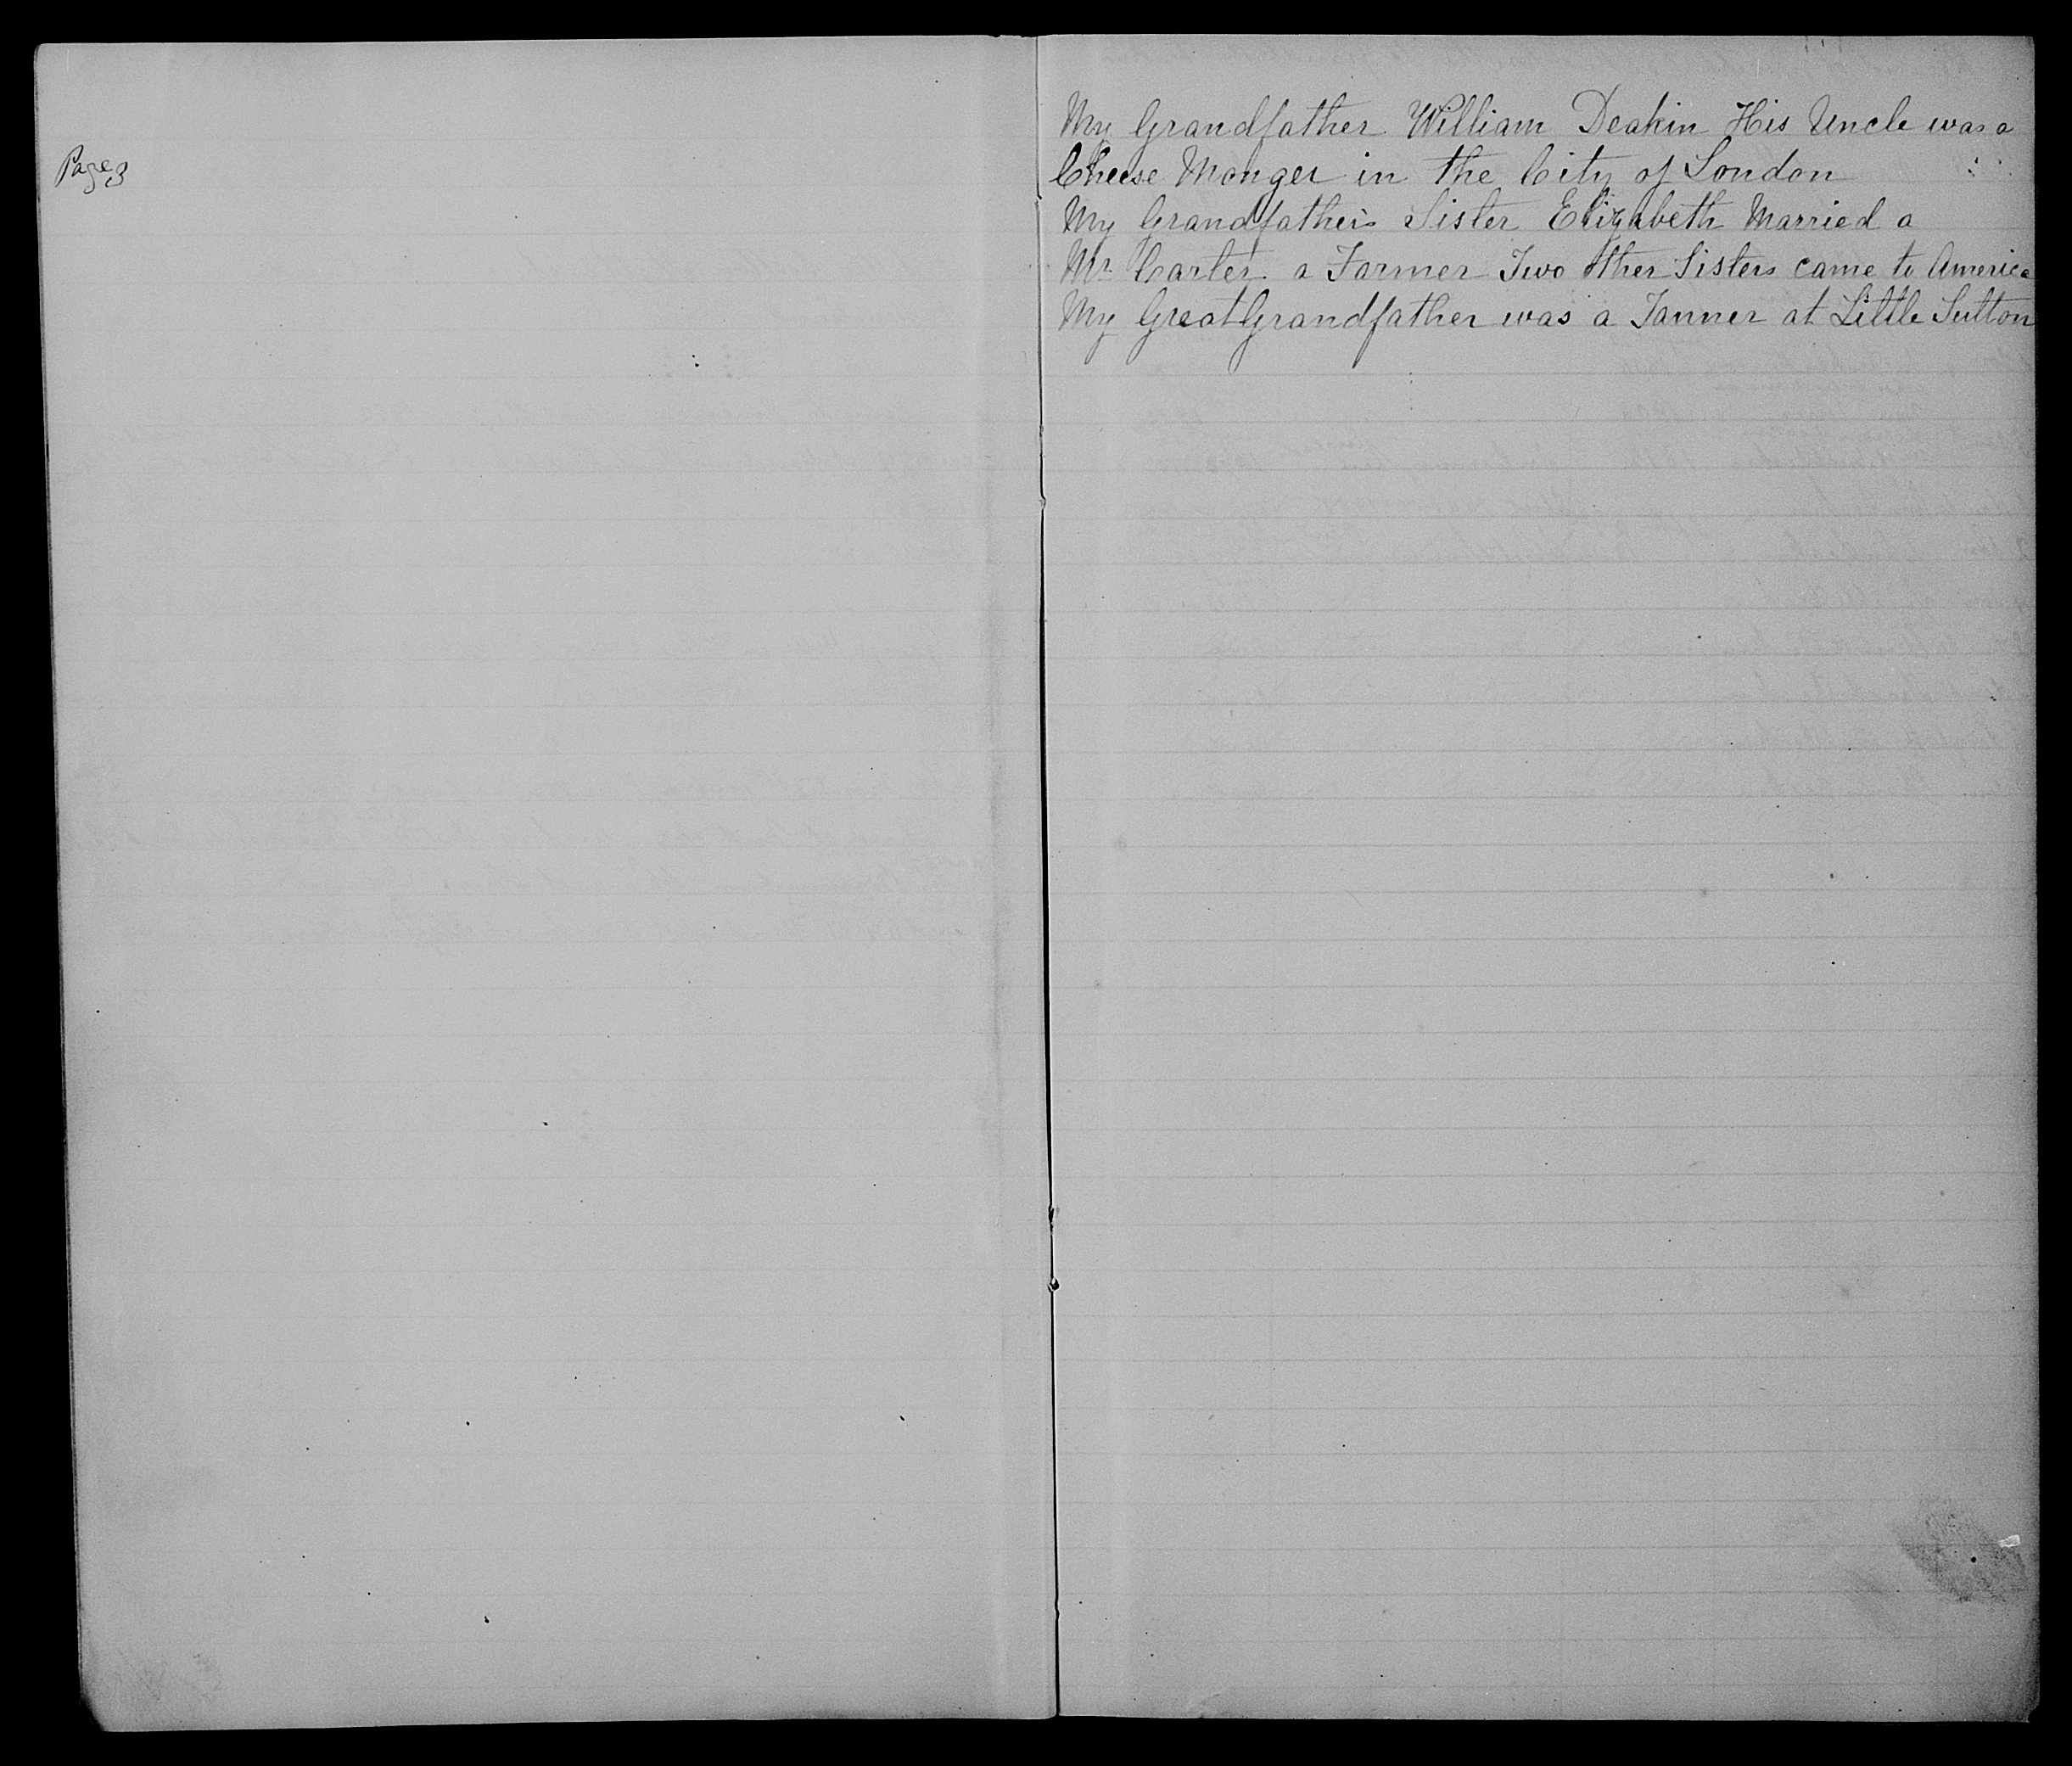 Page 3
My Grandfather William Deakin His Uncle was a
Cheese Monger in the City of London
My Grandfathers Sister Elizabeth Married a
Mr Carter a Farmer Two other Sisters came to America
My Great Grandfather was a Tanner at Little Sutton